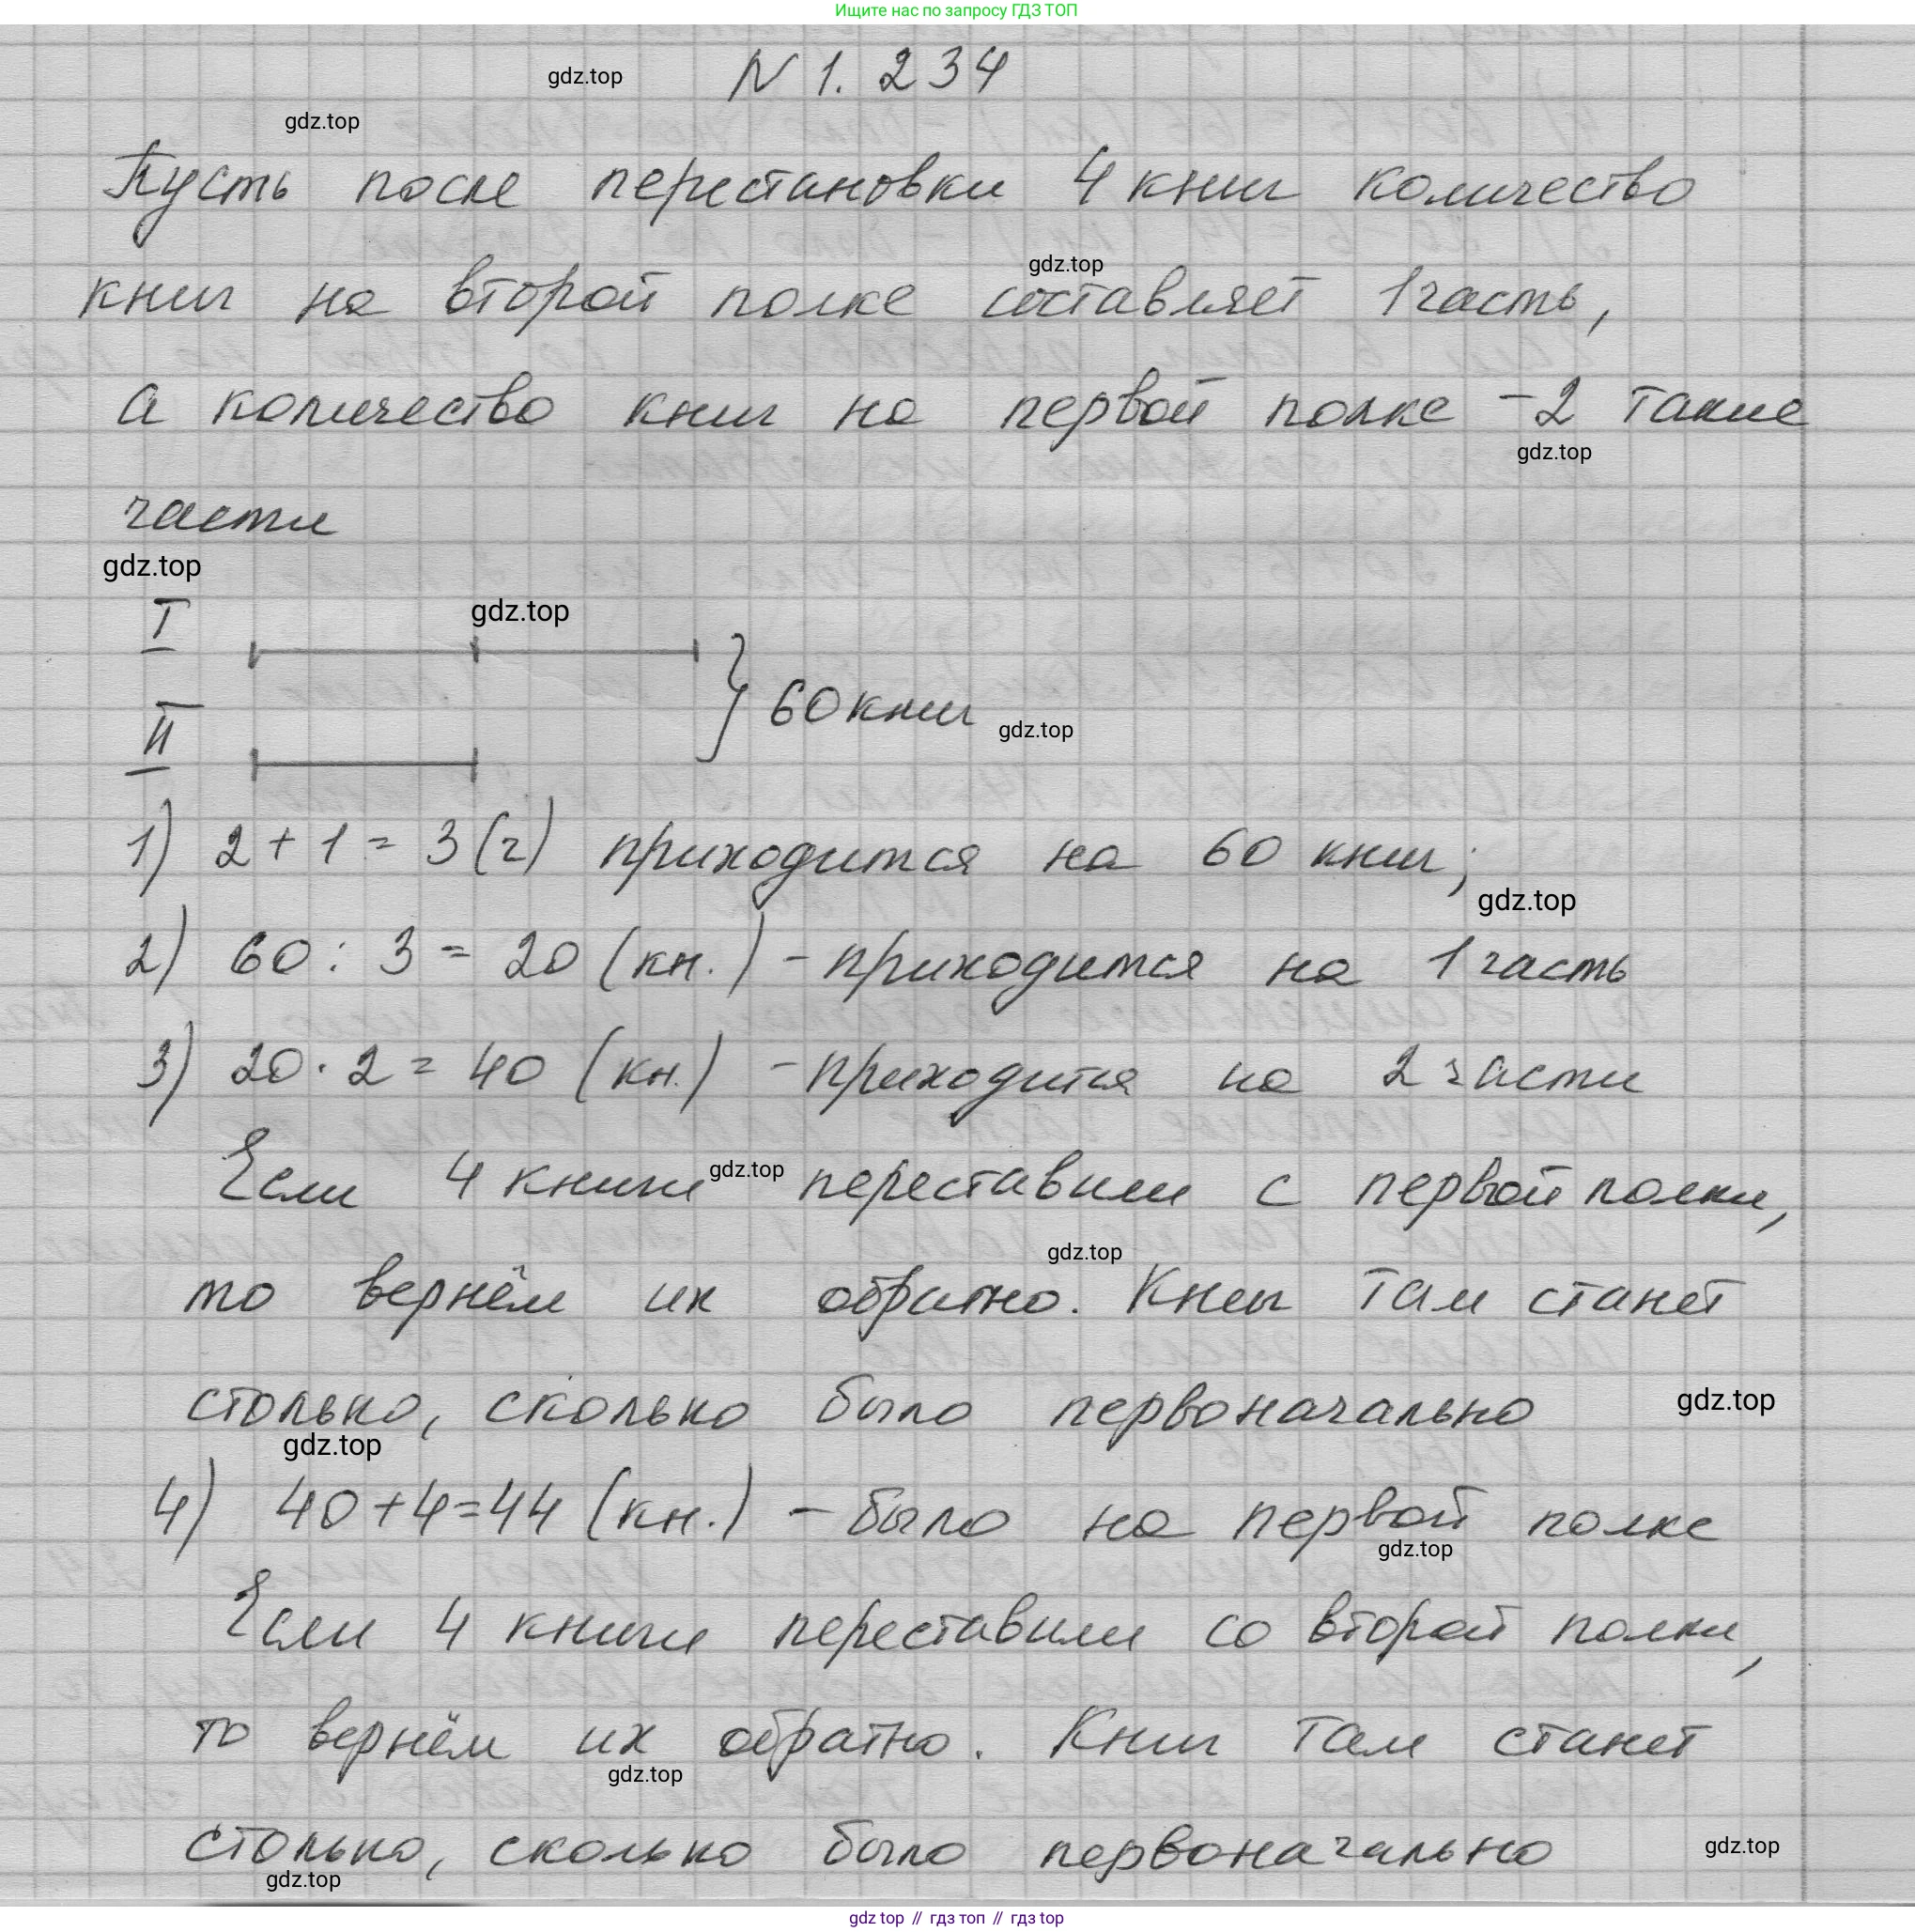 Ищите нас по запросу ГДЗ ТОП
gdz.top N 1. 234
gdz.top
Пусть после перестановки 4 книг количество
gdz.top
книг на второй полке составляет 1 часть,
а количество книг на первой полке - 2 такие
gdz.top
части
gdz.top
I gdz.top
II } 60 книг gdz.top
1) 2 + 1 = 3 (ч) приходится на 60 книг;
gdz.top
2) 60 : 3 = 20 (кн.) - приходится на 1 часть
3) 20 · 2 = 40 (кн.) - приходится на 2 части
Если 4 книги gdz.top переставили с первой полки,
gdz.top
то вернём их обратно. Книг там станет
столько, сколько было первоначально gdz.top
gdz.top
4) 40 + 4 = 44 (кн.) - было на первой полке
gdz.top
Если 4 книги переставили со второй полки,
то вернём их обратно. Книг там станет
gdz.top
столько, сколько было первоначально gdz.top
gdz.top
gdz top // гдз топ // гдз top